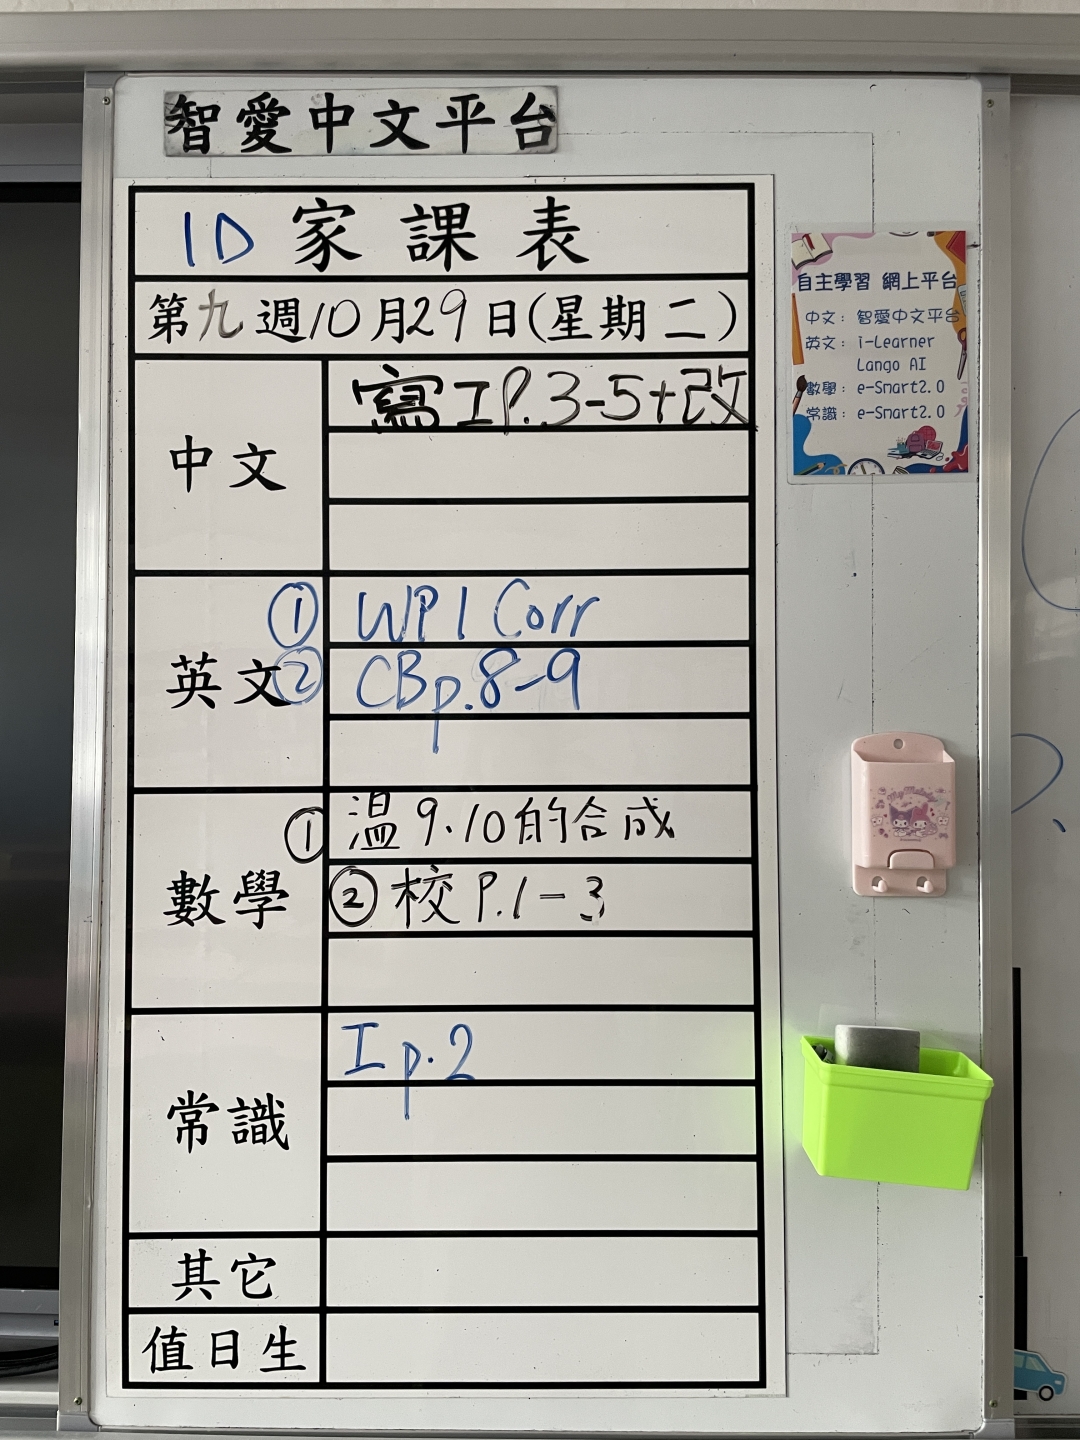 智愛中文平台
1D 家課表
第九週10月29日(星期二)
中文
寫工P.3-5+改
英文
① WP1 Corr
② CBp.8-9
數學
① 温9.10的合成
② 校P.1-3
常識
工p.2
其它
值日生
自主學習 網上平台
中文：智愛中文平台
英文：i-Learner
Lango AI
數學：e-Smart2.0
常識：e-Smart2.0